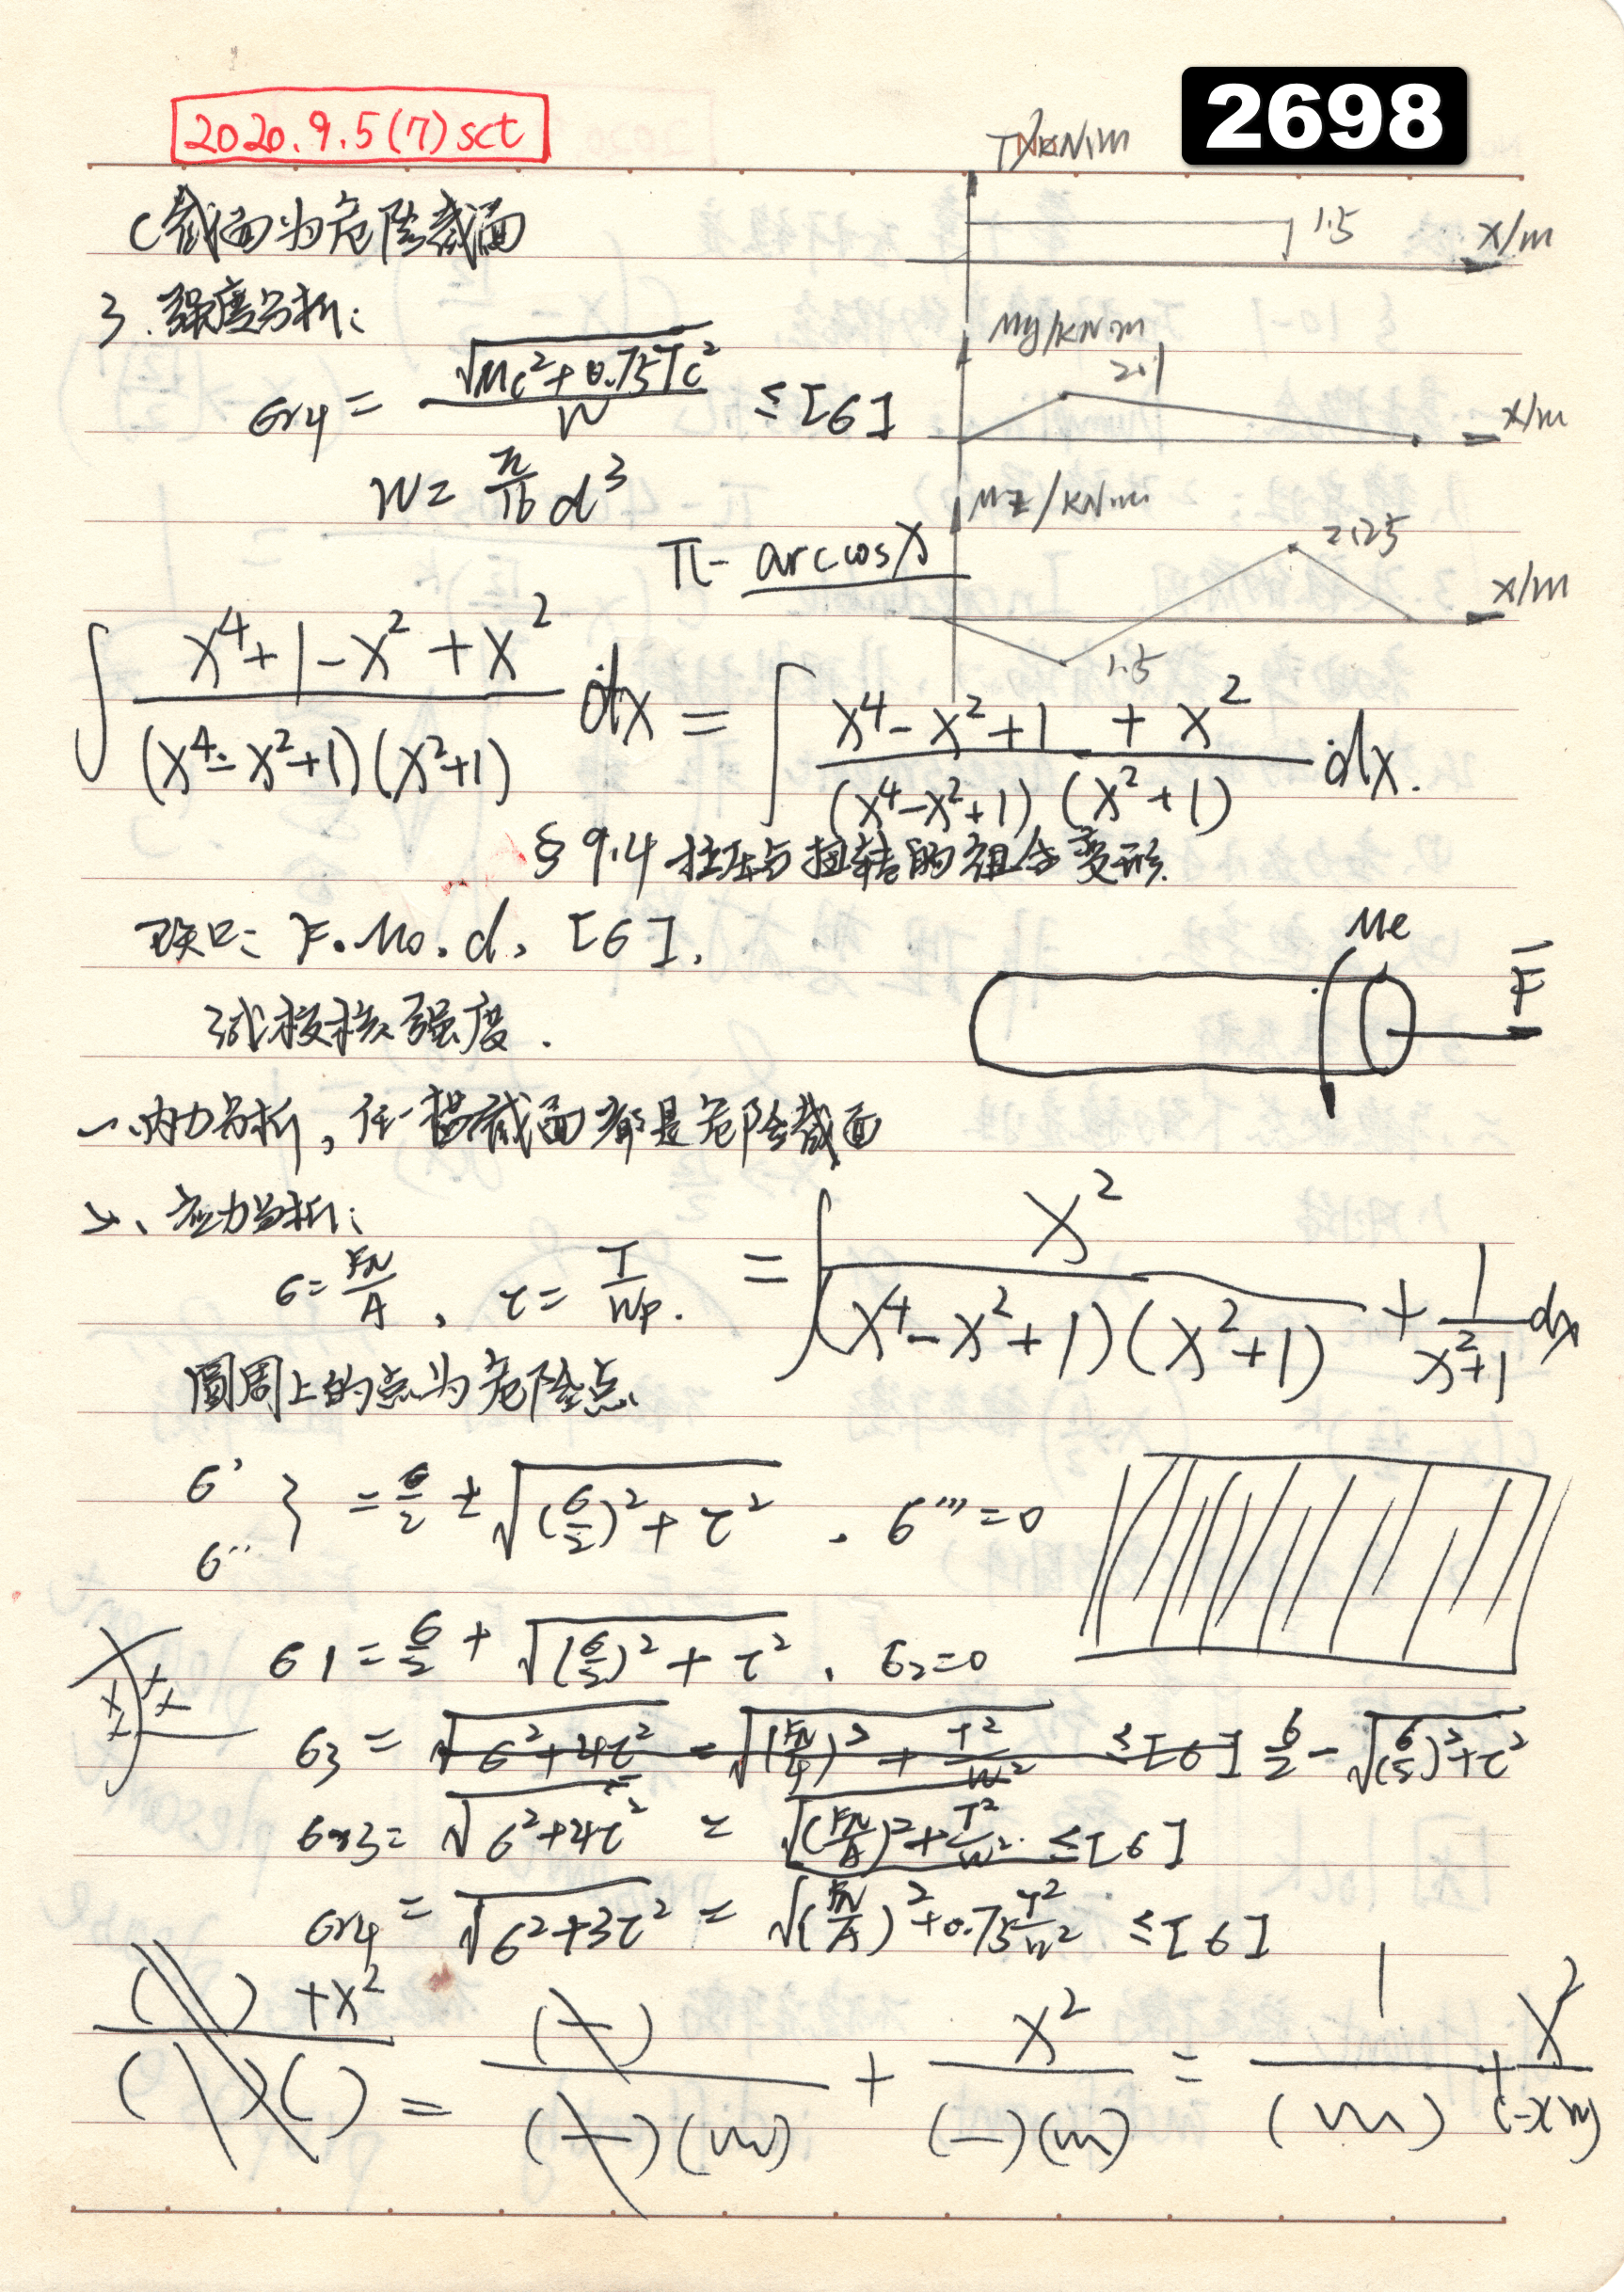 2698
2020.9.5(7) sct
T/kN·m
1.5
x/m
C截面为危险截面
3.强度分析:
My/kN·m
2.1
x/m
σr4 = √(Mc²+0.75Tc²) / W ≤[σ]
W= π/16 d³
Mz/kN·m
2.25
x/m
1.5
π- arccosx
∫ (x⁴+1-x²+x²) / ((x⁴-x²+1)(x²+1)) dx = ∫ (x⁴-x²+1 + x²) / ((x⁴-x²+1)(x²+1)) dx.
§ 9.4 拉压与扭转的组合变形
已知: F.Mo.d, [σ].
试校核强度.
Me
F
一、内力分析, 任一横截面都是危险截面
二、应力分析:
σ= FN/A , τ= T/Wp.
= ∫ x² / ((x⁴-x²+1)(x²+1)) + 1/(x²+1) dx
圆周上的点为危险点
σ' σ'' } = σ/2 ± √((σ/2)²+τ²) , σ'''=0
σ1= σ/2 + √((σ/2)²+τ²) , σ2=0
σ3 = √(σ²+4τ²) = √((FN/A)²+T²/W²) ≤[σ] σ/2 - √((σ/2)²+τ²)
σr3= √(σ²+4τ²) = √((FN/A)²+T²/W²) ≤[σ]
σr4 = √(σ²+3τ²) = √((FN/A)²+0.75T²/W²) ≤[σ]
( ) +x² / ( )( ) = ( ) / ( )( ) + x² / ( )( ) = 1 / ( ) + x² / ( )( )